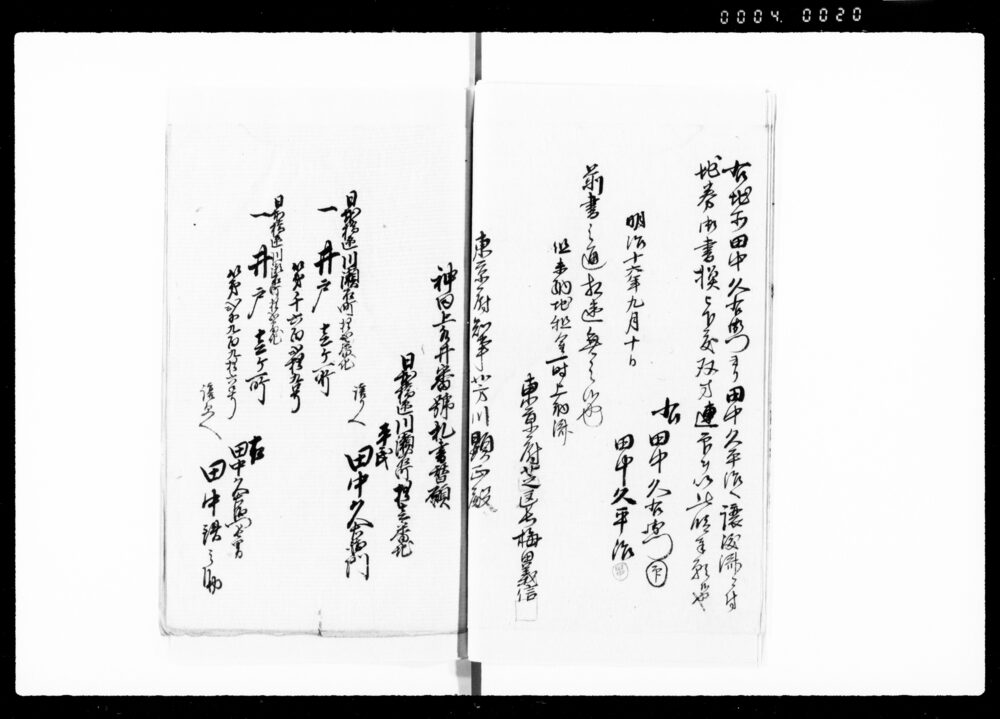 0004. 0020
右地所田中久右衛門ゟ田中久平治ヘ譲渡済ニ付
地券御書換之義双方連印ヲ以此段奉願候也
明治十六年九月十日
右田中久右衛門
田中久平治
前書之通相違無之候也
但未納地租金一時上納済
東京府芝区長梅田義信
東京府知事芳川顕正殿
神田上水井番号札書替願
日本橋区川瀬石町拾壱番地
平民
譲人 田中久右衛門
日本橋区川瀬石町拾壱番地
一井戸壱ケ所
日本橋区川瀬石町
一井戸壱ケ所
譲受人
右
田中久右衛門長男
田中